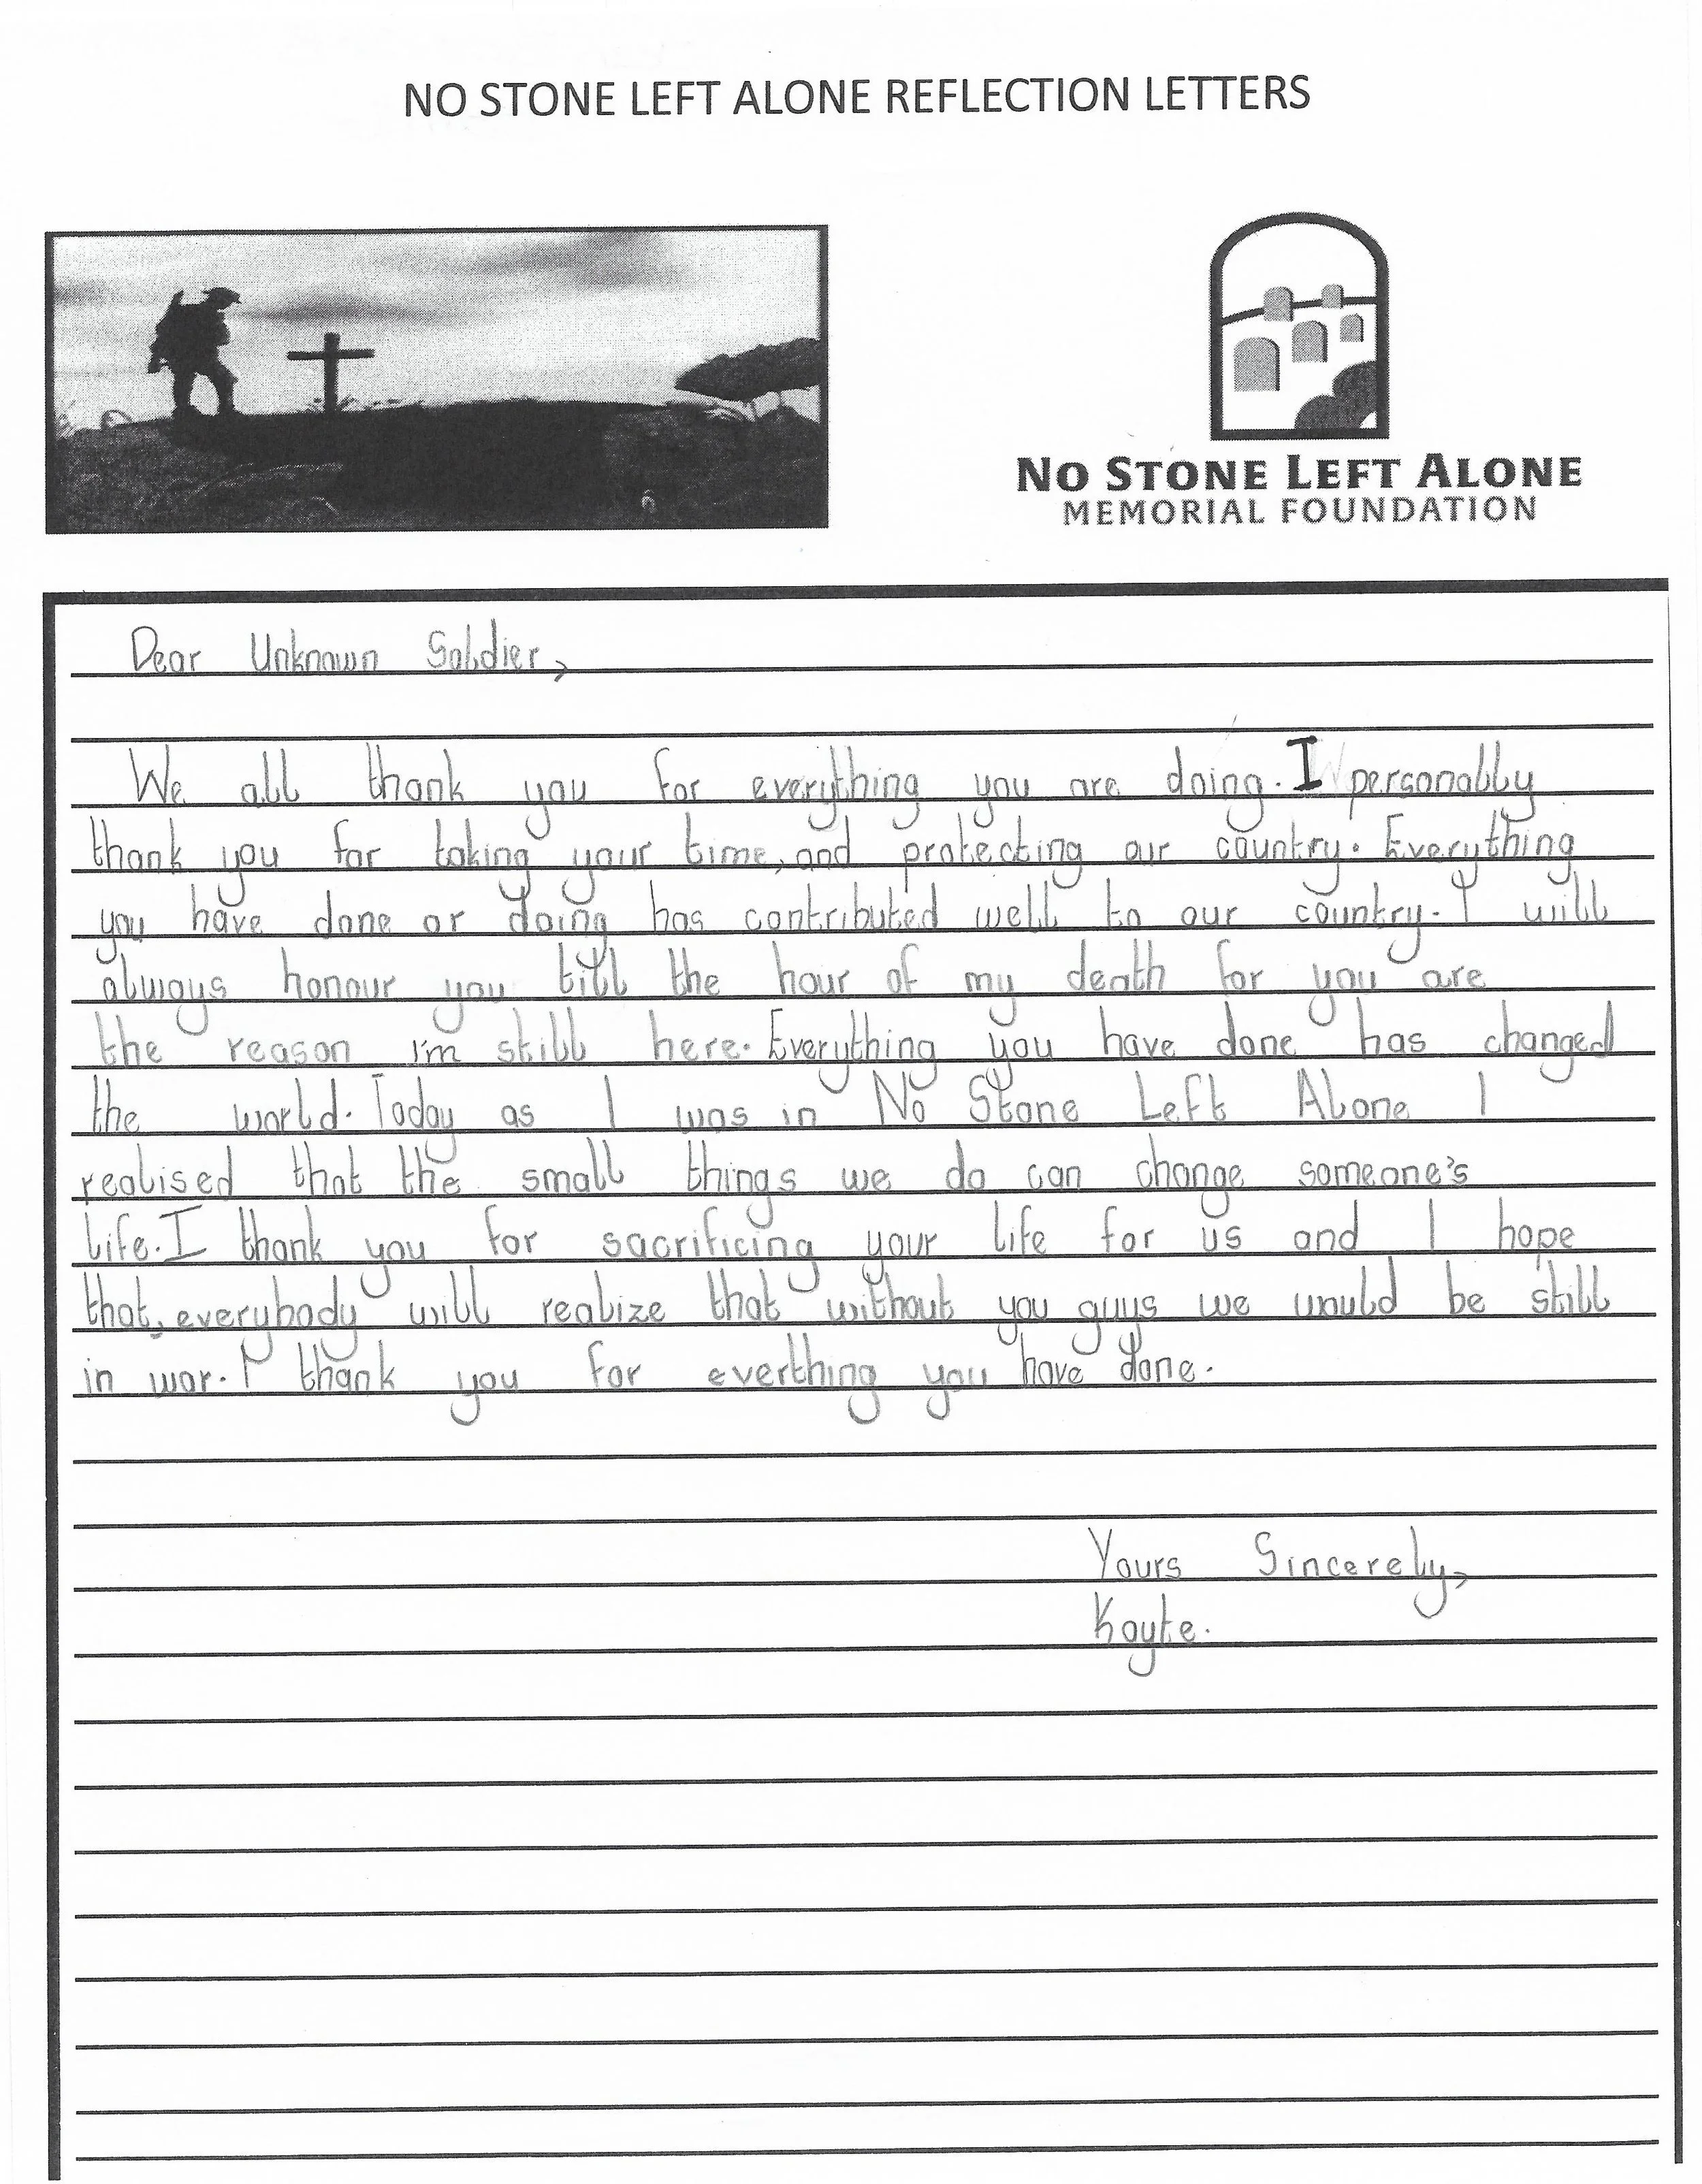 NO STONE LEFT ALONE REFLECTION LETTERS
NO STONE LEFT ALONE
MEMORIAL FOUNDATION
Dear Unknown Soldier,
We all thank you for everything you are doing. I personally
thank you for taking your time, and protecting our country. Everything
you have done or doing has contributed well to our country. I will
always honour you till the hour of my death for you are
the reason I'm still here. Everything you have done has changed
the world. Today as I was in No Stone Left Alone I
realised that the small things we do can change someone's
life. I thank you for sacrificing your life for us and I hope
that, everybody will realize that without you guys we would be still
in war. I thank you for everthing you have done.
Yours Sincerely,
Kayte.